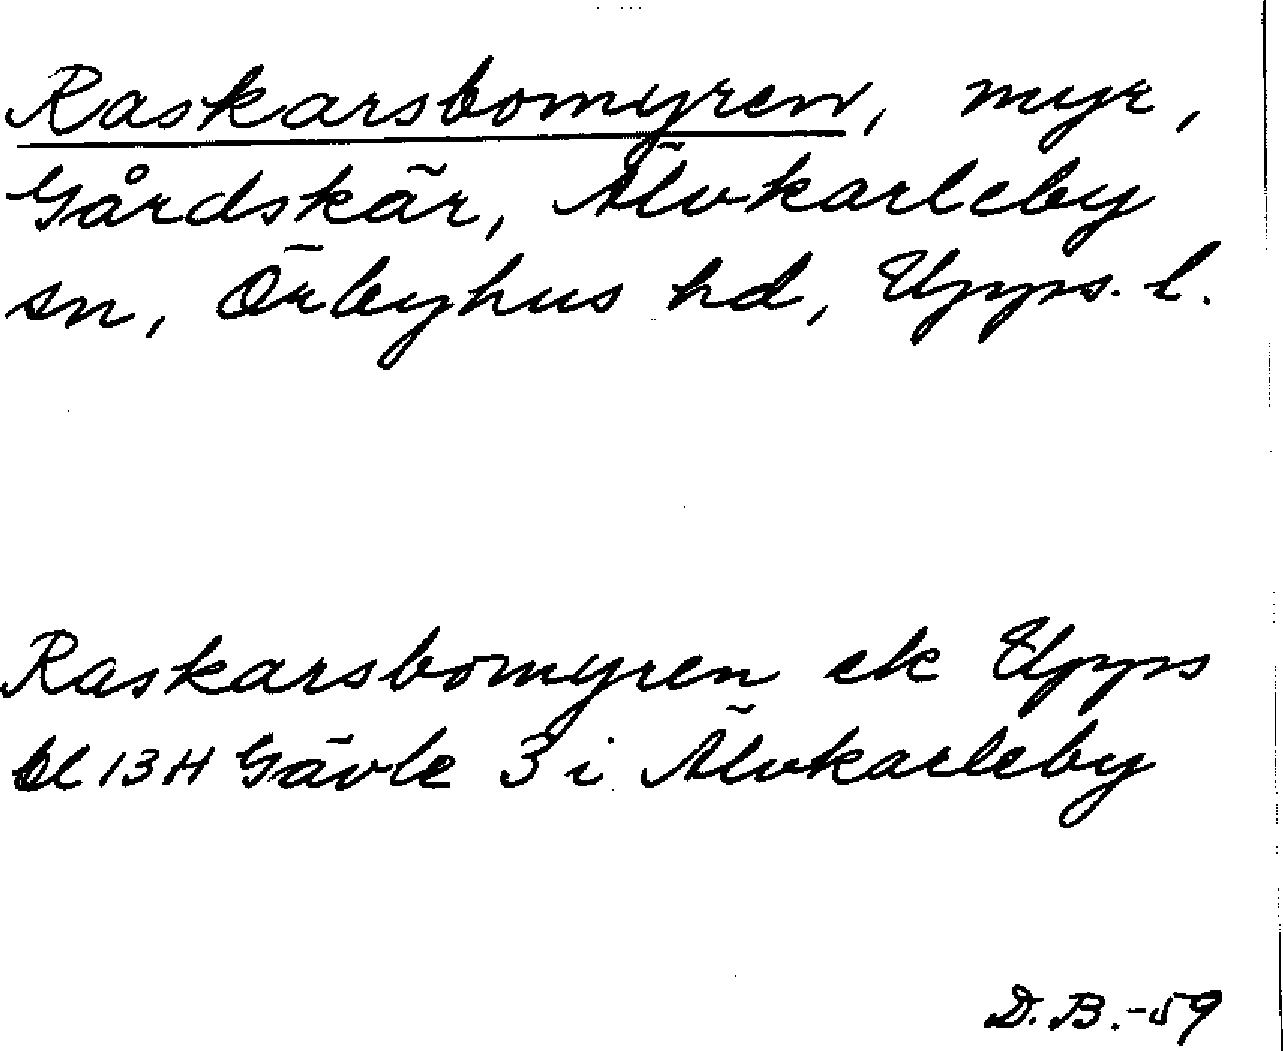 Raskarsbomyren, myr,
Gårdskär, Älvkarleby
sn, Örbyhus hd, Upps. l.
Raskarsbomyren ek Upps
bl 13 H Gävle 3 i Älvkarleby
D. B. -59